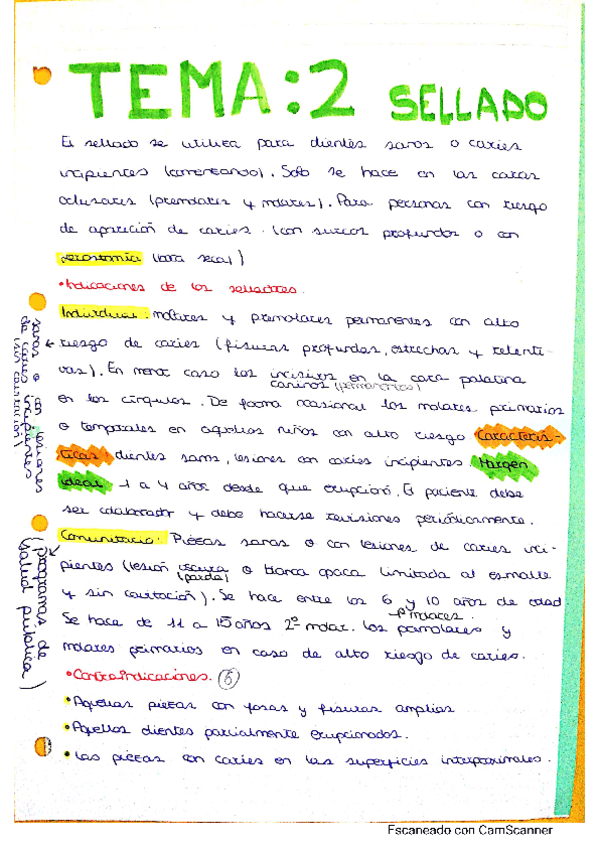 TEMA: 2 SELLADO
El sellado se utiliza para dientes sanos o caries
incipientes (comenzando). Solo se hace en las caras
oclusares (premolares y molares). Para personas con riesgo
de aparición de caries. (con surcos profundos o con
xerostomía (boca seca)
•Indicaciones de los selladores.
Individual: molares y premolares permanentes con alto
riesgo de caries (fisuras profundas, estrechas y retenti-
vas). En menor caso los incisivos en la cara palatina
caninos (permanentes)
en los cíngulos. De forma ocasional los molares primarios
o temporales en aquellos niños con alto riesgo Caracterís-
ticas: dientes sanos, lesiones con caries incipientes. Margen
ideal 1 a 4 años desde que erupcionó. El paciente debe
ser colaborador y debe hacerse revisiones periódicamente.
Comunitario: Piezas sanas o con lesiones de caries inci-
pientes (lesión oscura o blanca opaca limitada al esmalte
(parda)
y sin cavitación). Se hace entre los 6 y 10 años de edad
1º molares.
Se hace de 11 a 15 años 2º molar. Los premolares y
molares primarios en caso de alto riesgo de caries.
•Contraindicaciones. (6)
•Aquellas piezas con fosas y fisuras amplias
•Aquellos dientes parcialmente erupcionados.
•Las piezas con caries en las superficies interproximales.
sanas o con lesiones
de caries incipientes
(sin cavitación)
(programas de
salud pública)
Escaneado con CamScanner